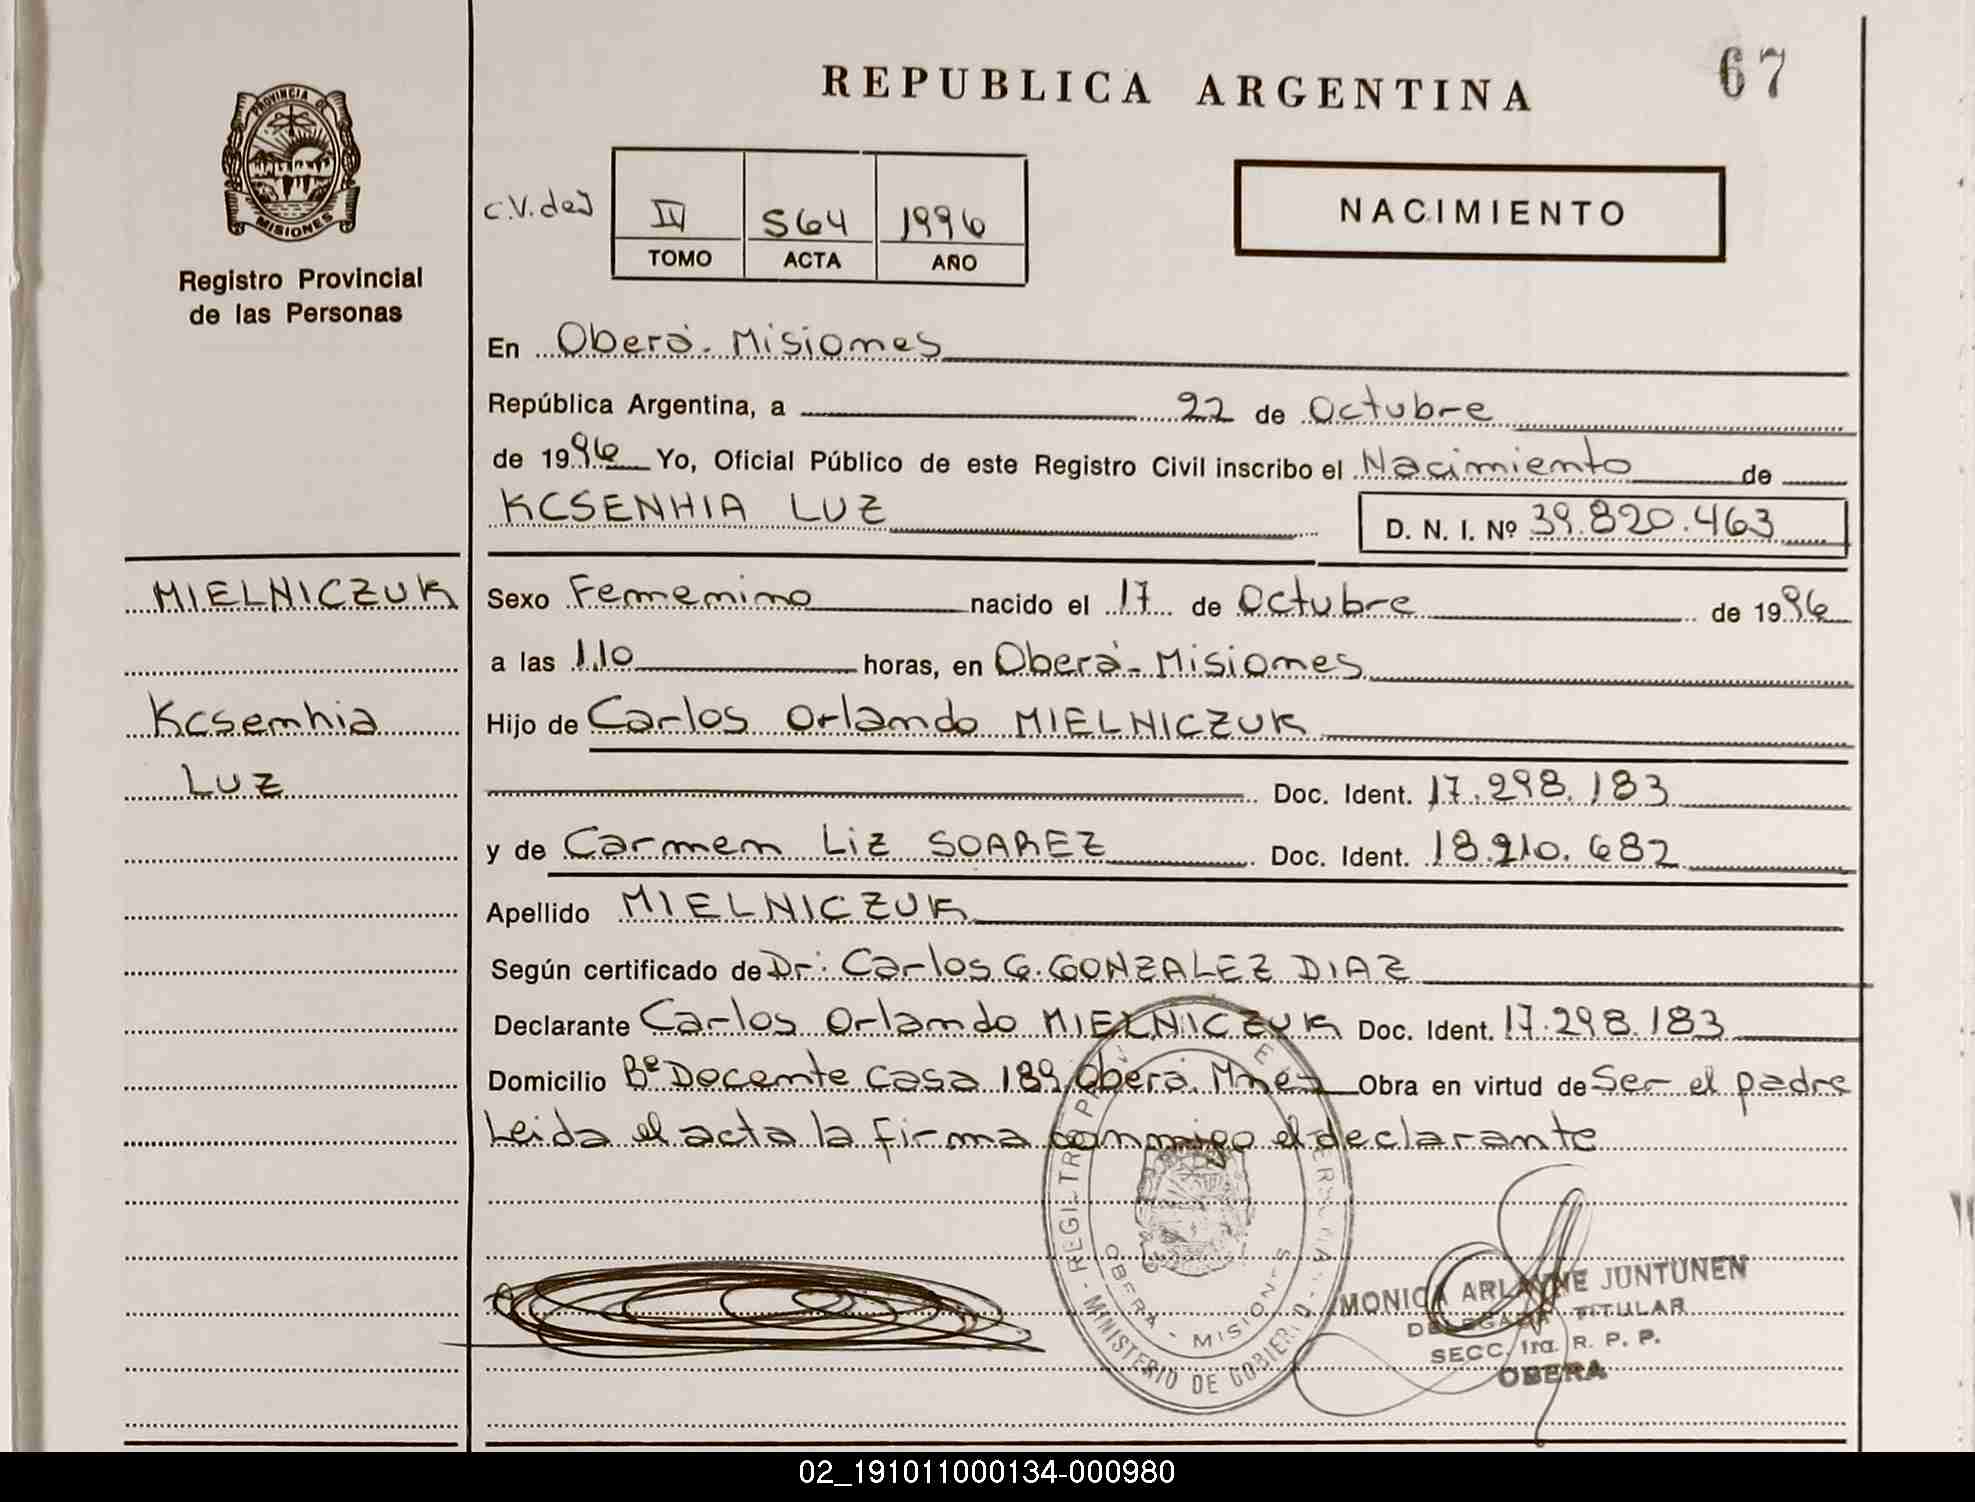 67
REPUBLICA ARGENTINA
PROVINCIA DE
MISIONES
Registro Provincial
de las Personas
C.V. de J
IV 564 1996
TOMO ACTA AÑO
NACIMIENTO
En Oberá - Misiones
República Argentina, a 22 de Octubre
de 1996 Yo, Oficial Público de este Registro Civil inscribo el Nacimiento de
KCSENHIA LUZ D. N. I. Nº 39.820.463
MIELNICZUK
Kcsenhia
Luz
Sexo Femenino nacido el 17 de Octubre de 1996
a las 1,10 horas, en Oberá - Misiones
Hijo de Carlos Orlando MIELNICZUK
Doc. Ident. 17.298.183
y de Carmen Liz SOAREZ Doc. Ident. 18.210.682
Apellido MIELNICZUK
Según certificado de Dr: Carlos G. GONZALEZ DIAZ
Declarante Carlos Orlando MIELNICZUK Doc. Ident. 17.298.183
Domicilio Bº Docente Casa 189 Oberá. Mnes Obra en virtud de Ser el padre
Leida el acta la firma conmigo el declarante
OBERA - MISIONES
MINISTERIO DE GOBIERNO
MONICA ARLAYNE JUNTUNEN
DELEGADA TITULAR
SECC. 1ra. R. P. P.
OBERA
02_191011000134-000980